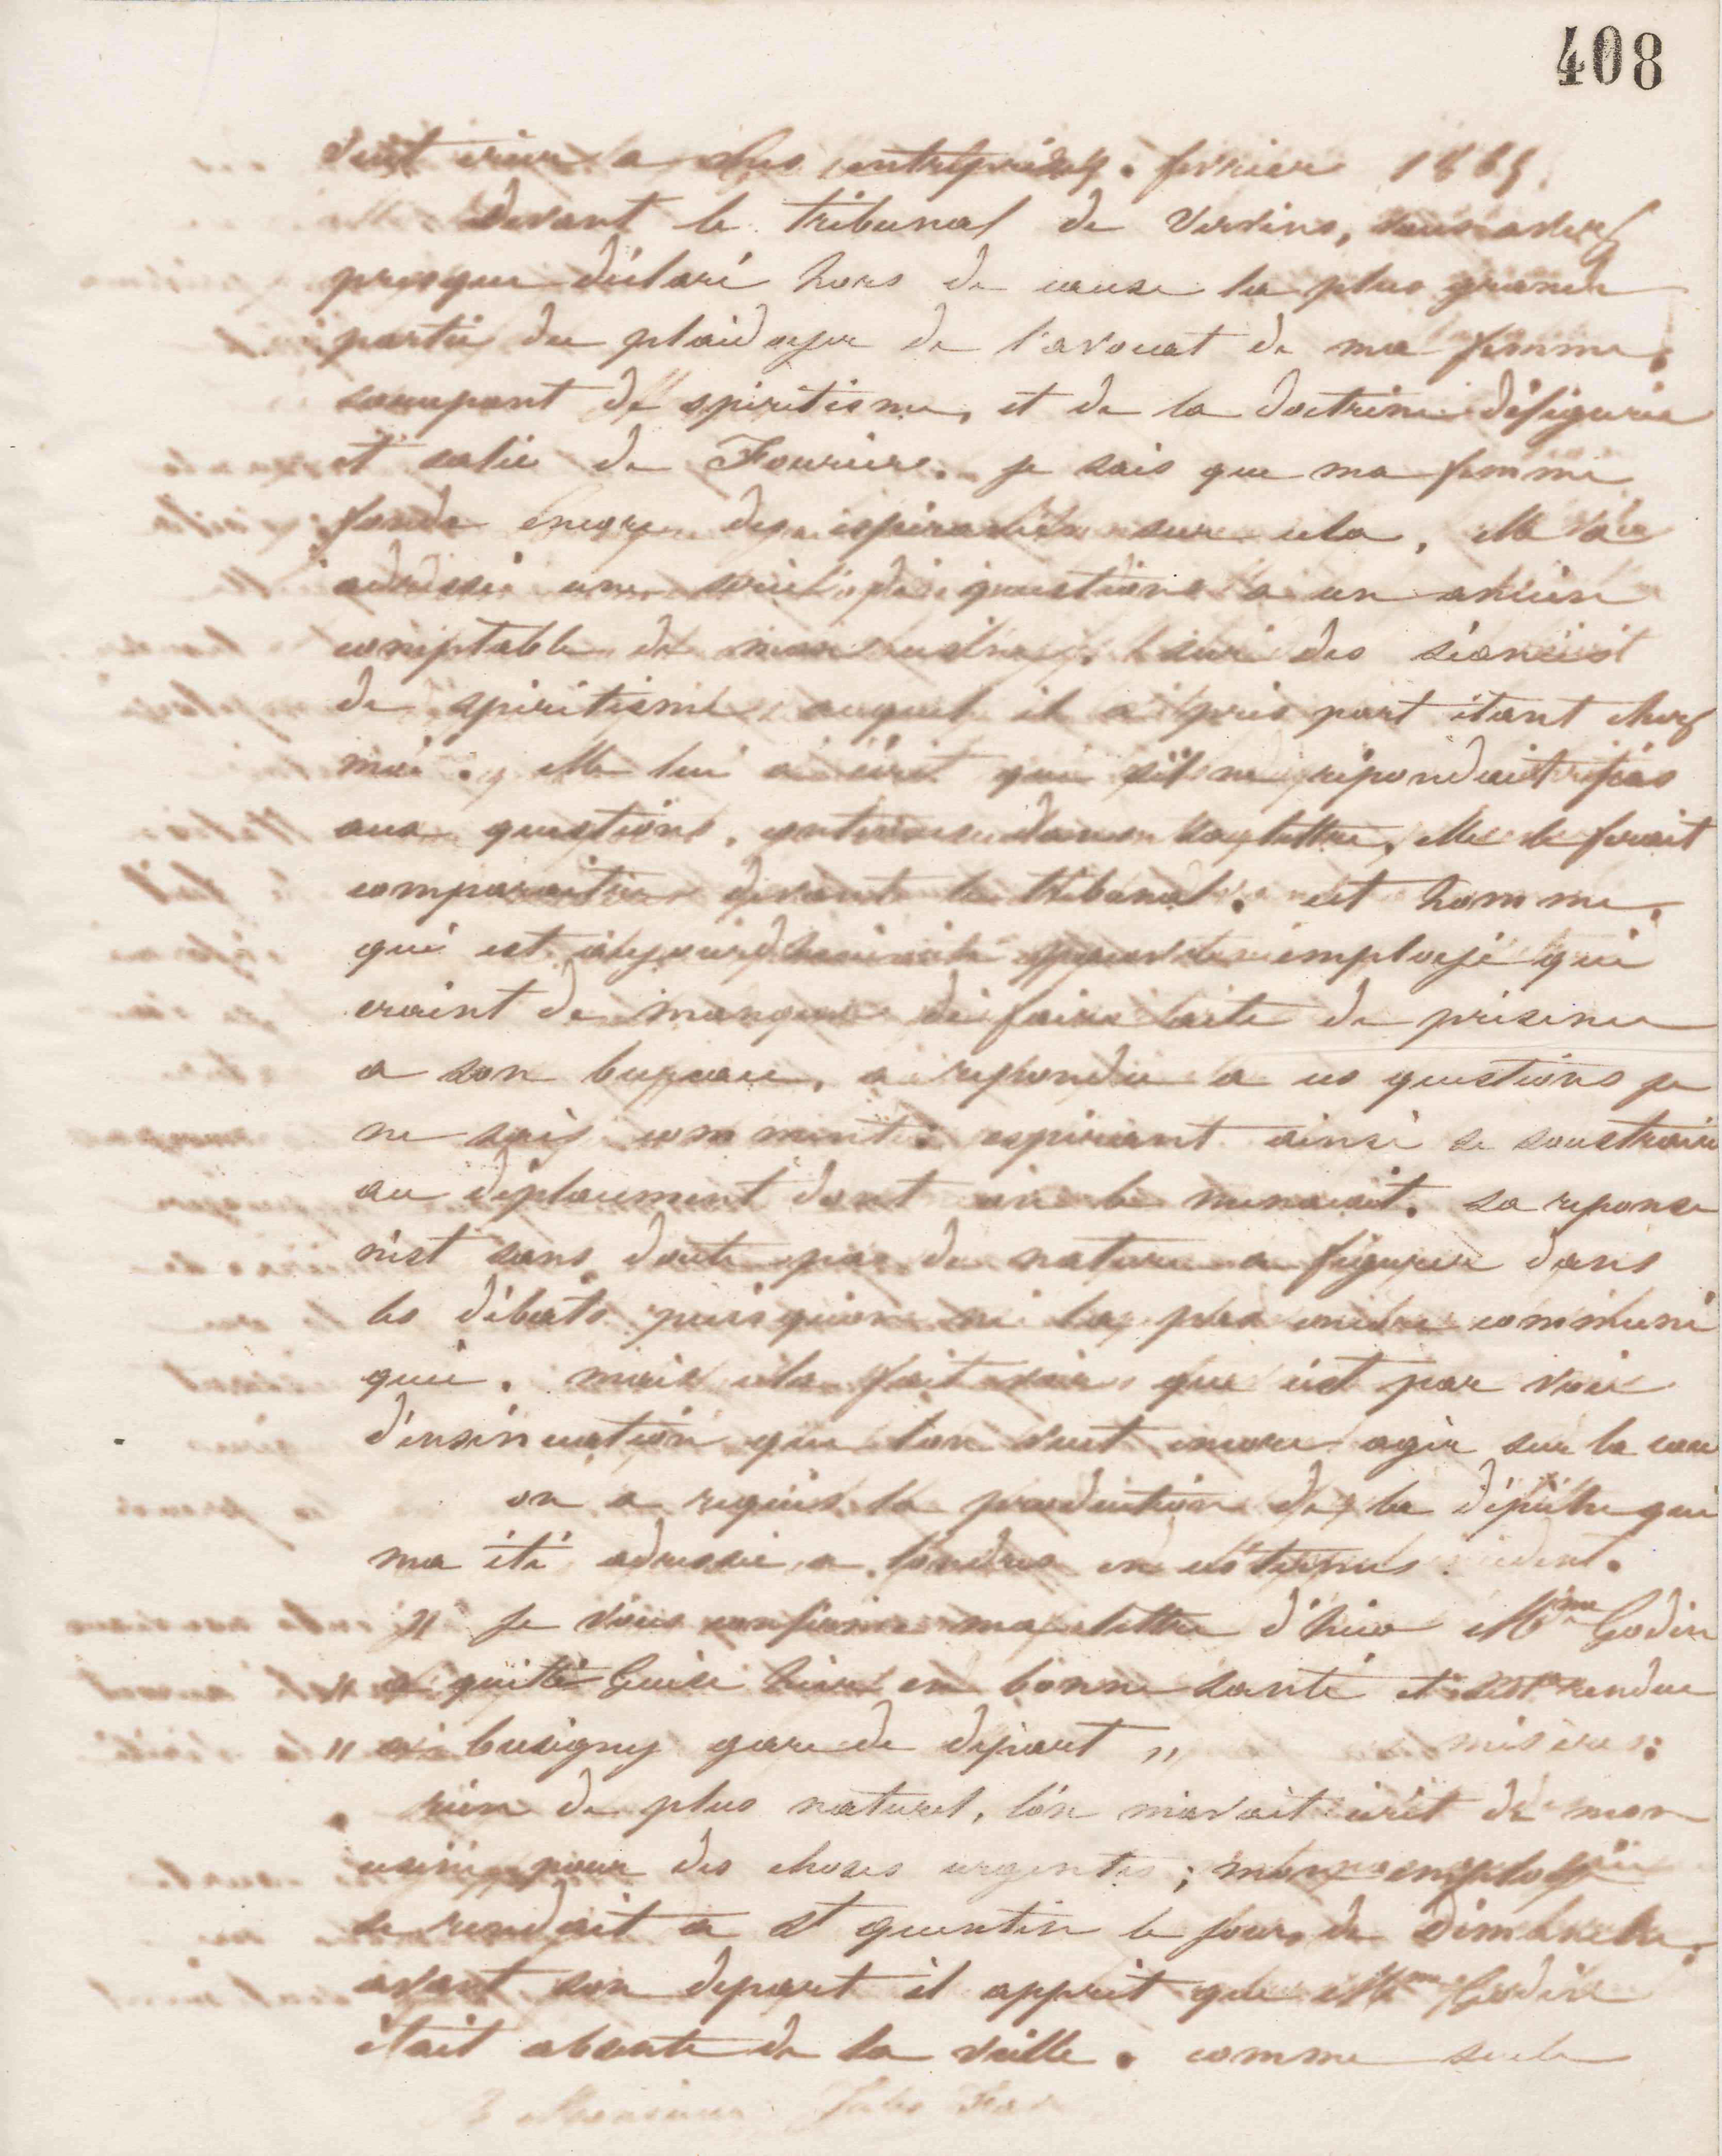 408
février 1865.
Devant le tribunal de Vervins, vous avez
presque déclaré hors de cause la plus grande
partie du plaidoyer de l'avocat de ma femme,
soccupant de spiritisme, et de la doctrine défigurée
et salie de Fourier. je sais que ma femme
fonde encore des espérances sur cela, elle a
adressé une série de questions a un ancien
comptable de mon usine, sur des séances
de spiritisme auquel il a pris part étant chez
moi. elle lui a écrit que s'il ne répondait pas
aux questions, contenues dans sa lettre, elle le ferait
comparaitre devant le tribunal. cet homme,
qui est aujourdhui employé qui
craint de manquer de faire acte de présence
a son bureau, a repondu a ces questions je
ne sais comment: espérant ainsi se soustraire
au déplacement dont on le menacait. sa reponse
n'est sans doute pas de nature a figurer dans
les débats puisquon ne la pas encore communi
quée. mais cela fait voir que c'est par voie
d'insinuation que l'on veut encore agir sur la cour
on a requis la production de la dépêche qui
ma été adressée a londres en ces termes
" Je vous confirme ma lettre d'hier Mme Godin
" a quitté Guise hier en bonne santé et s'est rendue
" a busigny gare de départ "
rien de plus naturel, l'on m'avait écrit de mon
usine pour des choses urgentes; mon employé
se rendait a St quentin le jour de Dimanche.
avant son depart il apprit que Mme Godin
était absente de la veille. comme